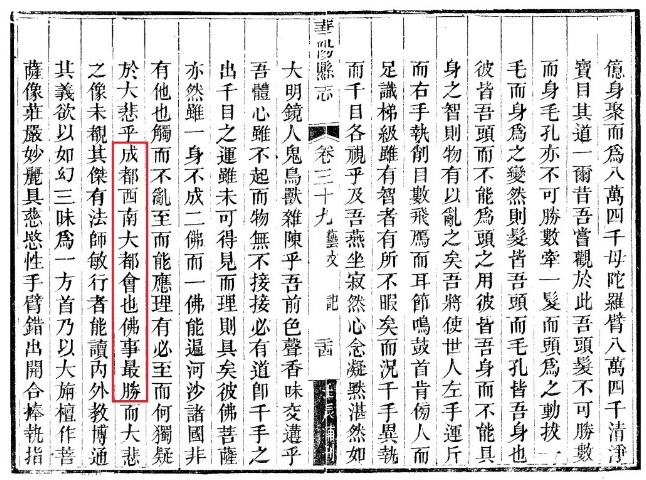 億身聚而爲八萬四千母陀羅臂八萬四千清淨
寶目其道一爾昔吾嘗觀於此吾頭髮不可勝數
而身毛孔亦不可勝數牽一髮而頭爲之動拔一
毛而身爲之變然則髮皆吾頭而毛孔皆吾身也
彼皆吾頭而不能爲頭之用彼皆吾身而不能具
身之智則物有以亂之矣吾將使世人左手運斤
而右手執削目數飛鴈而耳節鳴鼓首肯傍人而
足識梯級雖有智者有所不暇矣而況千手異執
而千目各視乎及吾燕坐寂然心念凝黙湛然如
華陽縣志 卷三十九 藝文 記 廿四 壬辰
大明鏡人鬼鳥獸雜陳乎吾前色聲香味交遘乎
吾體心雖不起而物無不接接必有道卽千手之
出千目之運雖未可得見而理則具矣彼佛菩薩
亦然雖一身不成二佛而一佛能遍河沙諸國非
有他也觸而不亂至而能應理有必至而何獨疑
於大悲乎成都西南大都會也佛事最勝而大悲
之像未覩其傑有法師敏行者能讀內外教博通
其義欲以如幻三昧爲一方首乃以大旃檀作菩
薩像莊嚴妙麗具慈愍性手臂錯出開合捧執指